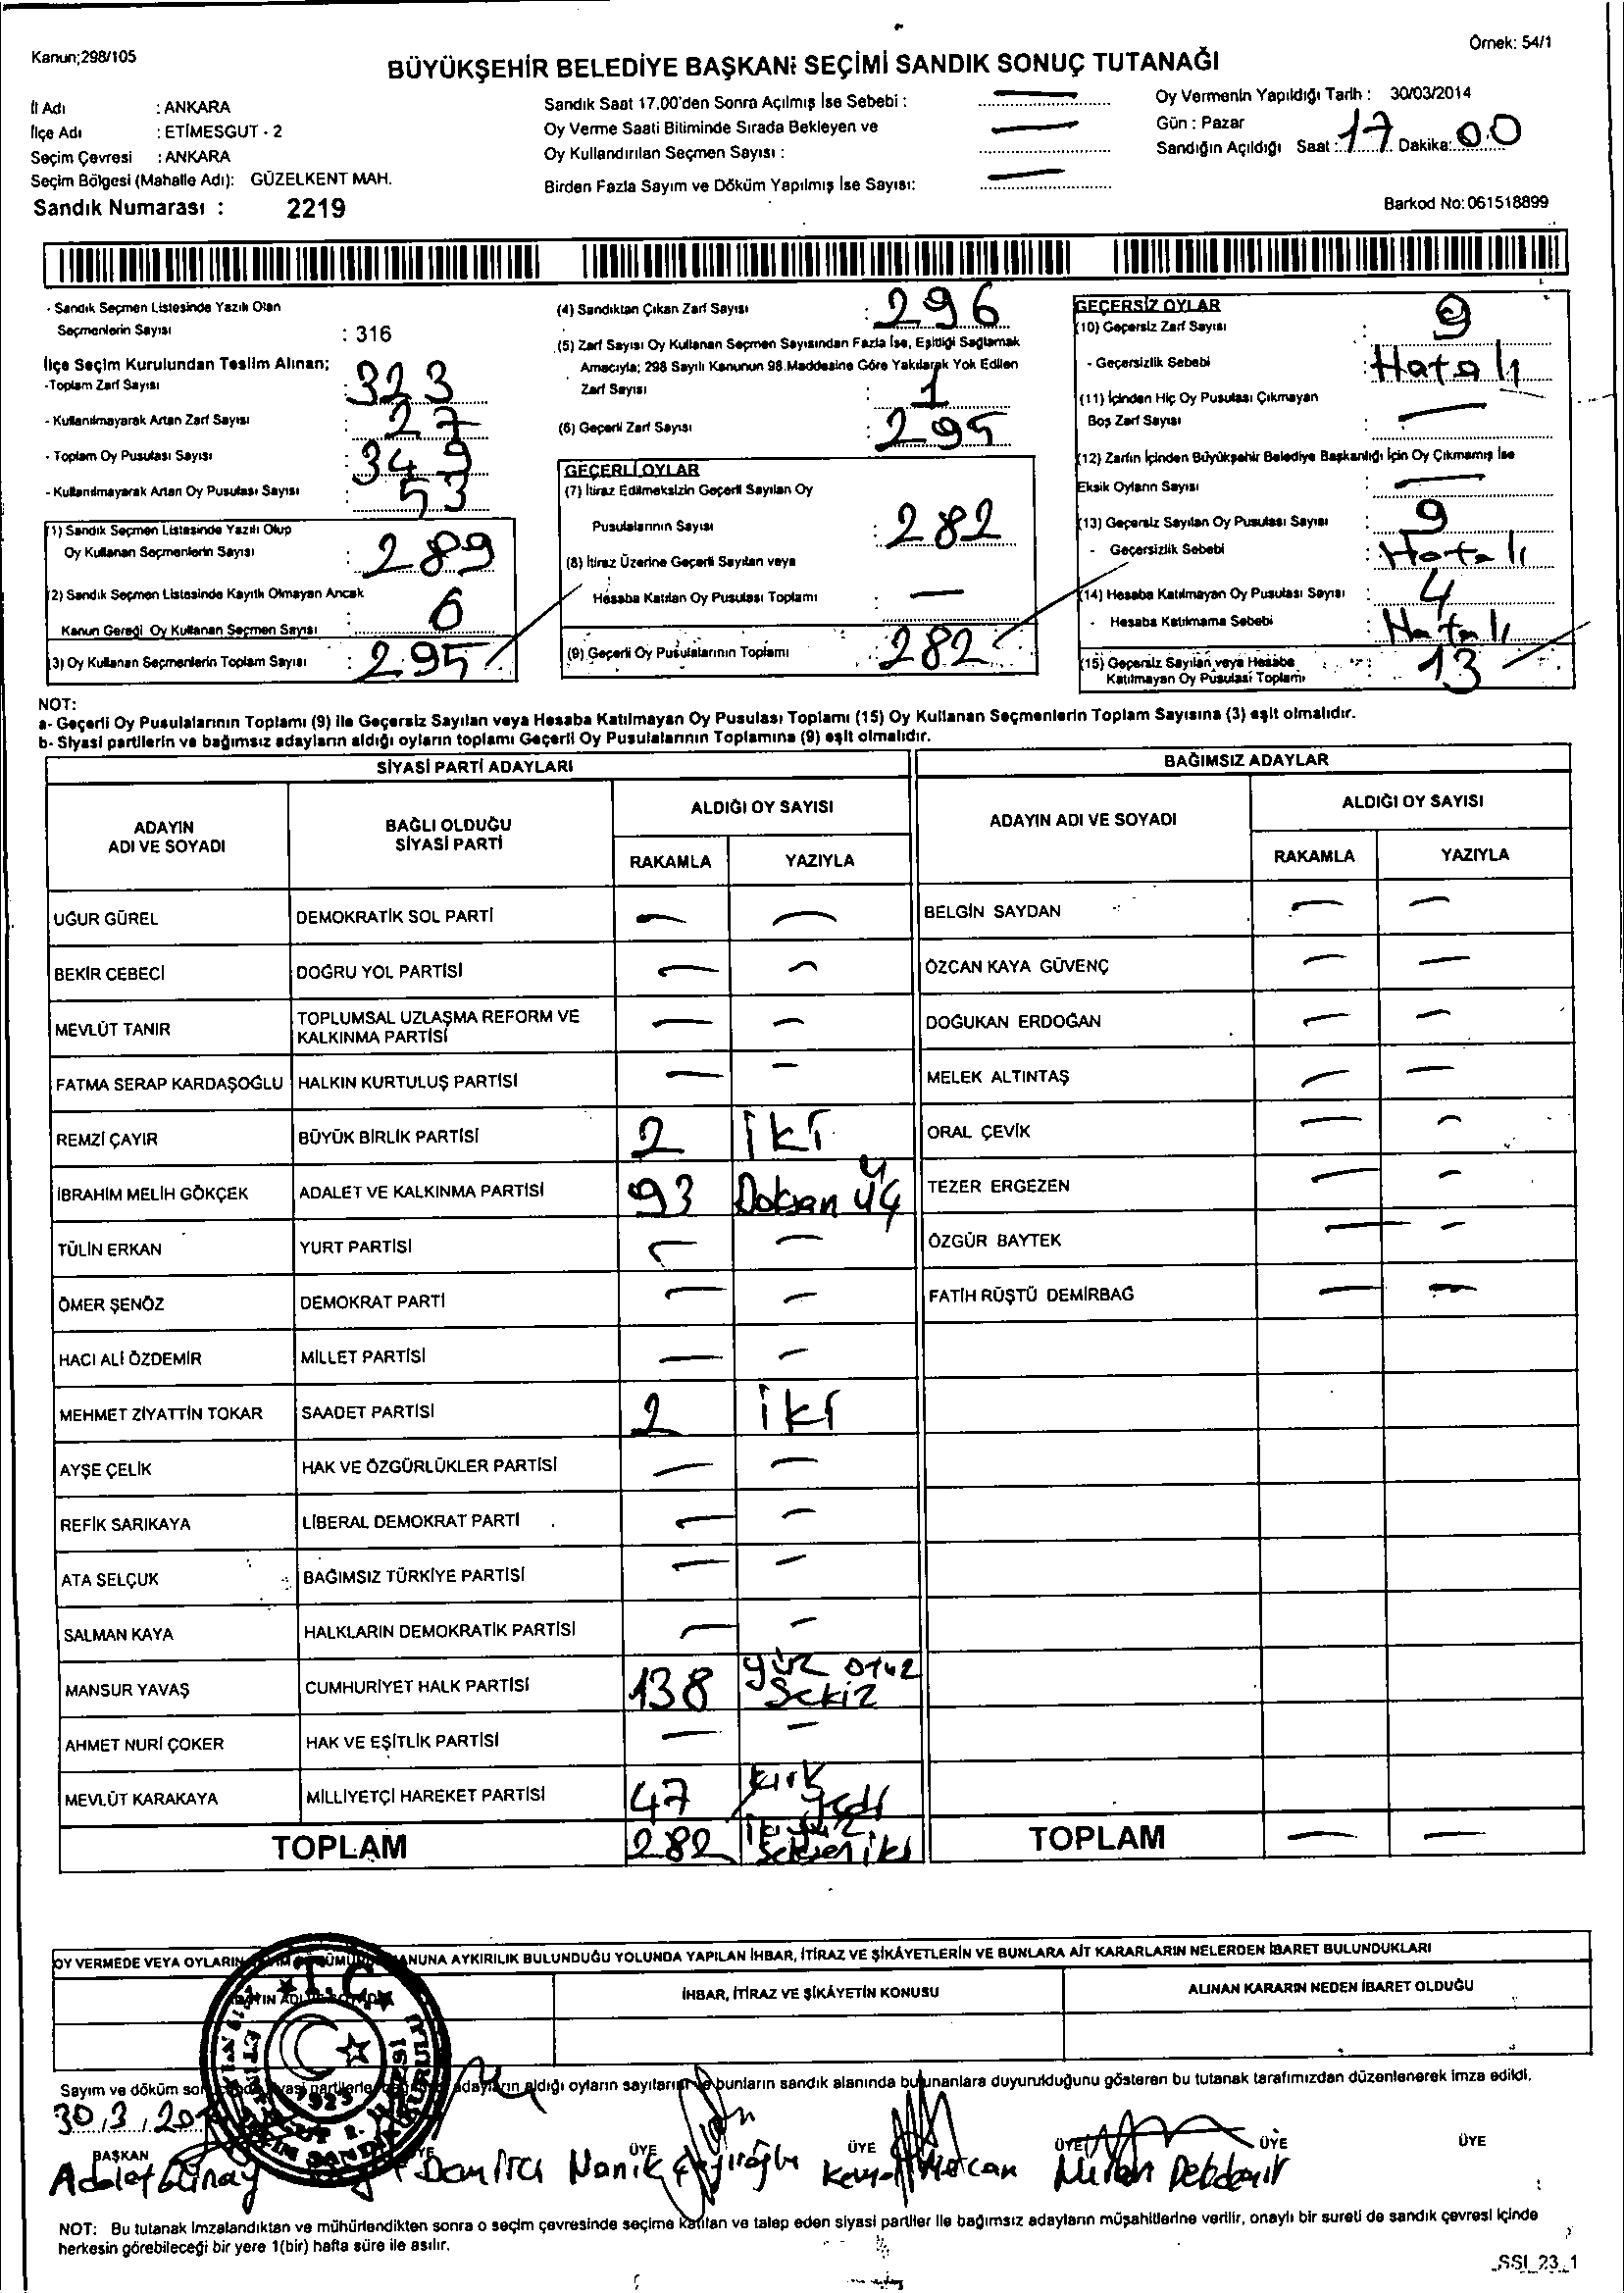 Kanun;298/105
Örnek: 54/1
BÜYÜKŞEHİR BELEDİYE BAŞKANI SEÇİMİ SANDIK SONUÇ TUTANAĞI
İl Adı : ANKARA
İlçe Adı : ETİMESGUT - 2
Seçim Çevresi : ANKARA
Seçim Bölgesi (Mahalle Adı): GÜZELKENT MAH.
Sandık Numarası : 2219
Sandık Saat 17.00'den Sonra Açılmış İse Sebebi : —
Oy Verme Saati Bitiminde Sırada Bekleyen ve
Oy Kullandırılan Seçmen Sayısı : —
Birden Fazla Sayım ve Döküm Yapılmış İse Sayısı: —
Oy Vermenin Yapıldığı Tarih : 30/03/2014
Gün : Pazar
Sandığın Açıldığı Saat : 17 Dakika: 00
Barkod No: 061518899
- Sandık Seçmen Listesinde Yazılı Olan
Seçmenlerin Sayısı : 316
İlçe Seçim Kurulundan Teslim Alınan;
-Toplam Zarf Sayısı : 323
- Kullanılmayarak Artan Zarf Sayısı : 27
- Toplam Oy Pusulası Sayısı : 349
- Kullanılmayarak Artan Oy Pusulası Sayısı : 53
(1) Sandık Seçmen Listesinde Yazılı Olup
Oy Kullanan Seçmenlerin Sayısı : 289
(2) Sandık Seçmen Listesinde Kayıtlı Olmayan Ancak
Kanun Gereği Oy Kullanan Seçmen Sayısı : 6
(3) Oy Kullanan Seçmenlerin Toplam Sayısı : 295
(4) Sandıktan Çıkan Zarf Sayısı : 296
(5) Zarf Sayısı Oy Kullanan Seçmen Sayısından Fazla İse, Eşitliği Sağlamak
Amacıyla; 298 Sayılı Kanunun 98.Maddesine Göre Yakılarak Yok Edilen
Zarf Sayısı : 1
(6) Geçerli Zarf Sayısı : 295
GEÇERLİ OYLAR
(7) İtiraz Edilmeksizin Geçerli Sayılan Oy
Pusulalarının Sayısı : 282
(8) İtiraz Üzerine Geçerli Sayılan veya
Hesaba Katılan Oy Pusulası Toplamı : —
(9) Geçerli Oy Pusulalarının Toplamı : 282
GEÇERSİZ OYLAR
(10) Geçersiz Zarf Sayısı : 9
- Geçersizlik Sebebi : Hatalı
(11) İçinden Hiç Oy Pusulası Çıkmayan
Boş Zarf Sayısı : —
(12) Zarfın İçinden Büyükşehir Belediye Başkanlığı İçin Oy Çıkmamış İse
Eksik Oyların Sayısı : —
(13) Geçersiz Sayılan Oy Pusulası Sayısı : 9
- Geçersizlik Sebebi : Hatalı
(14) Hesaba Katılmayan Oy Pusulası Sayısı : 4
- Hesaba Katılmama Sebebi : Hatalı
(15) Geçersiz Sayılan veya Hesaba
Katılmayan Oy Pusulası Toplamı : 13
NOT:
a- Geçerli Oy Pusulalarının Toplamı (9) ile Geçersiz Sayılan veya Hesaba Katılmayan Oy Pusulası Toplamı (15) Oy Kullanan Seçmenlerin Toplam Sayısına (3) eşit olmalıdır.
b- Siyasi partilerin ve bağımsız adayların aldığı oyların toplamı Geçerli Oy Pusulalarının Toplamına (9) eşit olmalıdır.
SİYASİ PARTİ ADAYLARI
ADAYIN ADI VE SOYADI
BAĞLI OLDUĞU SİYASİ PARTİ
ALDIĞI OY SAYISI
RAKAMLA YAZIYLA
UĞUR GÜREL DEMOKRATİK SOL PARTİ — —
BEKİR CEBECİ DOĞRU YOL PARTİSİ — —
MEVLÜT TANIR TOPLUMSAL UZLAŞMA REFORM VE KALKINMA PARTİSİ — —
FATMA SERAP KARDAŞOĞLU HALKIN KURTULUŞ PARTİSİ — —
REMZİ ÇAYIR BÜYÜK BİRLİK PARTİSİ 2 iki
İBRAHİM MELİH GÖKÇEK ADALET VE KALKINMA PARTİSİ 93 Doksan üç
TÜLİN ERKAN YURT PARTİSİ — —
ÖMER ŞENÖZ DEMOKRAT PARTİ — —
HACI ALİ ÖZDEMİR MİLLET PARTİSİ — —
MEHMET ZİYATTİN TOKAR SAADET PARTİSİ 2 iki
AYŞE ÇELİK HAK VE ÖZGÜRLÜKLER PARTİSİ — —
REFİK SARIKAYA LİBERAL DEMOKRAT PARTİ — —
ATA SELÇUK BAĞIMSIZ TÜRKİYE PARTİSİ — —
SALMAN KAYA HALKLARIN DEMOKRATİK PARTİSİ — —
MANSUR YAVAŞ CUMHURİYET HALK PARTİSİ 138 yüz otuz sekiz
AHMET NURİ ÇOKER HAK VE EŞİTLİK PARTİSİ — —
MEVLÜT KARAKAYA MİLLİYETÇİ HAREKET PARTİSİ 47 kırk yedi
TOPLAM 282 iki yüz seksen iki
BAĞIMSIZ ADAYLAR
ADAYIN ADI VE SOYADI
ALDIĞI OY SAYISI
RAKAMLA YAZIYLA
BELGİN SAYDAN — —
ÖZCAN KAYA GÜVENÇ — —
DOĞUKAN ERDOĞAN — —
MELEK ALTINTAŞ — —
ORAL ÇEVİK — —
TEZER ERGEZEN — —
ÖZGÜR BAYTEK — —
FATİH RÜŞTÜ DEMİRBAĞ — —
TOPLAM — —
OY VERMEDE VEYA OYLARIN KANUNA AYKIRILIK BULUNDUĞU YOLUNDA YAPILAN İHBAR, İTİRAZ VE ŞİKÂYETLERİN VE BUNLARA AİT KARARLARIN NELERDEN İBARET BULUNDUKLARI
İHBAR, İTİRAZ VE ŞİKÂYETİN KONUSU
ALINAN KARARIN NEDEN İBARET OLDUĞU
T.C.
1923
Sayım ve döküm adayların aldığı oyların sayılarını ve bunların sandık alanında bulunanlara duyurulduğunu gösteren bu tutanak tarafımızdan düzenlenerek imza edildi.
30.3.20
BAŞKAN ÜYE ÜYE ÜYE ÜYE ÜYE ÜYE
Adalet Günay
Demirci
NOT: Bu tutanak imzalandıktan ve mühürlendikten sonra o seçim çevresinde seçime katılan ve talep eden siyasi partiler ile bağımsız adayların müşahitlerine verilir, onaylı bir sureti de sandık çevresi içinde
herkesin görebileceği bir yere 1(bir) hafta süre ile asılır.
_SSI_23_1